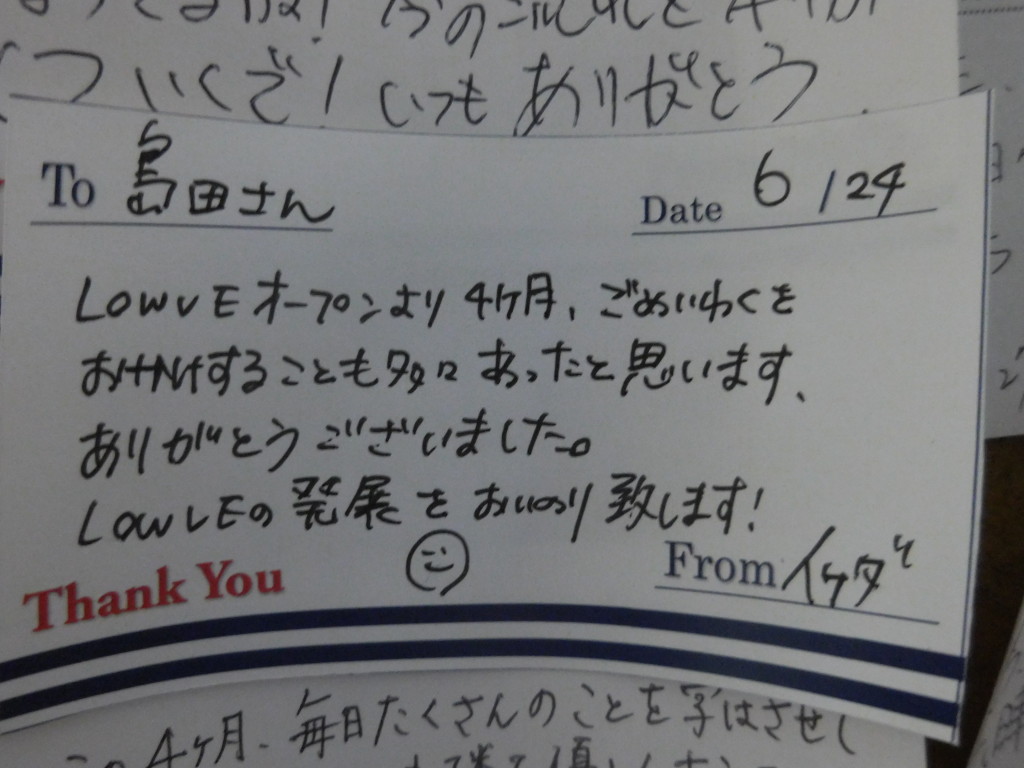 ついくぞ! いつもありがとう
To 島田さん
Date 6/24
LOWVE オープンより 4ケ月、ごめいわくを
おかけすることも多々あったと思います、
ありがとうございました。
LOWVEの発展をおいのり致します!
Thank You
From イケダ
4ヶ月、毎日たくさんのことを学ばさせ